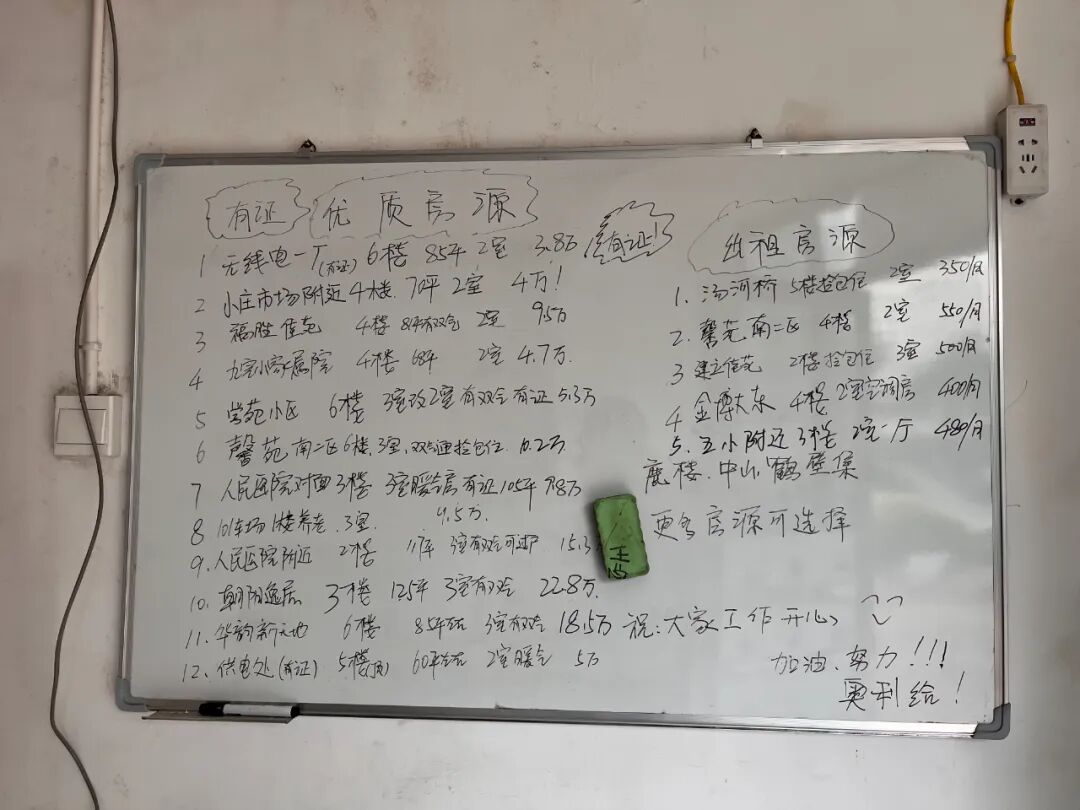 有证 优质房源
1 无线电一厂(有证) 6楼 85平 2室 3.8万 有证!
2 小庄市场附近 4楼 70平 2室 4万!
3 福胜佳苑 4楼 有双气 2室 9.5万
4 家属院 4楼 68平 2室 4.7万.
5 学苑小区 6楼 3室改2室有双气 有证 5.3万
6 馨苑南二区 6楼 3室, 拎包住 10.2万
7 人民医院对面 3楼 3室暖气房 有证 105平 7.8万
8 101车场 1楼养老 3室. 4.5万.
9. 人民医院附近 2楼 3室有双气 15.3
10. 朝阳逸居 3楼 125平 3室有双气 22.8万.
11. 华韵新天地 6楼 85平左右 3室有双气 18.5万
12. 供电处(有证) 5楼(顶) 60平左右 2室暖气 5万
出租房源
1. 汤河桥 5楼拎包住 2室 350/月
2. 馨苑南二区 4楼 2室 550/月
3 建立佳苑 2楼拎包住 3室 500/月
4 金博大东 4楼 2室空调房 400/月
5. 五小附近 3楼 2室一厅 480/月
鹿楼. 中山. 鹤壁集
更多房源可选择
祝:大家工作开心
加油、努力!!!
奥利给!